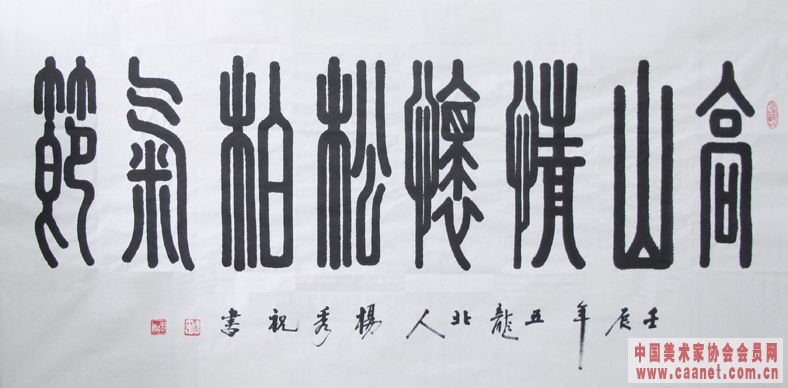 高山情懷松柏氣節
壬辰年五龍北人楊秀祝書
中国美术家协会会员网
www.caanet.com.cn